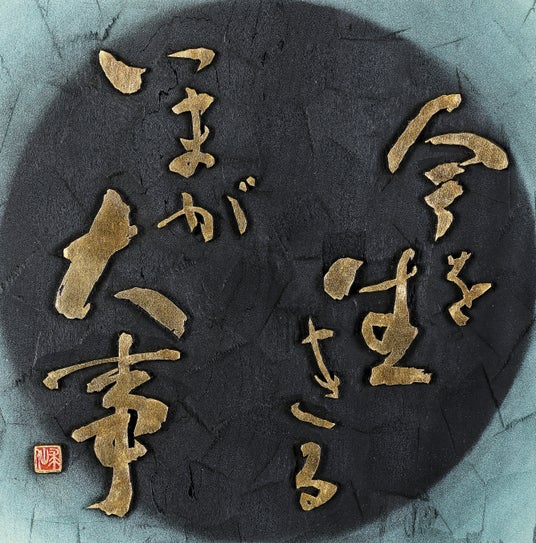 今を生きる
いまが大事